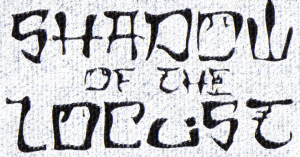 SHADOW
OF THE
LOCUST